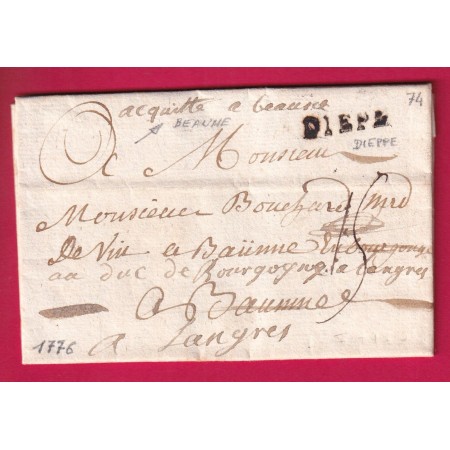 74
acquitté a beaune
BEAUNE
DIEPE
DIEPPE
A Monsieur
Monsieur Bouchard Mrd
De Vin a Baünne En bourgongne
au duc de Bourgogne a Langres
a Baunne
a Langres
1776